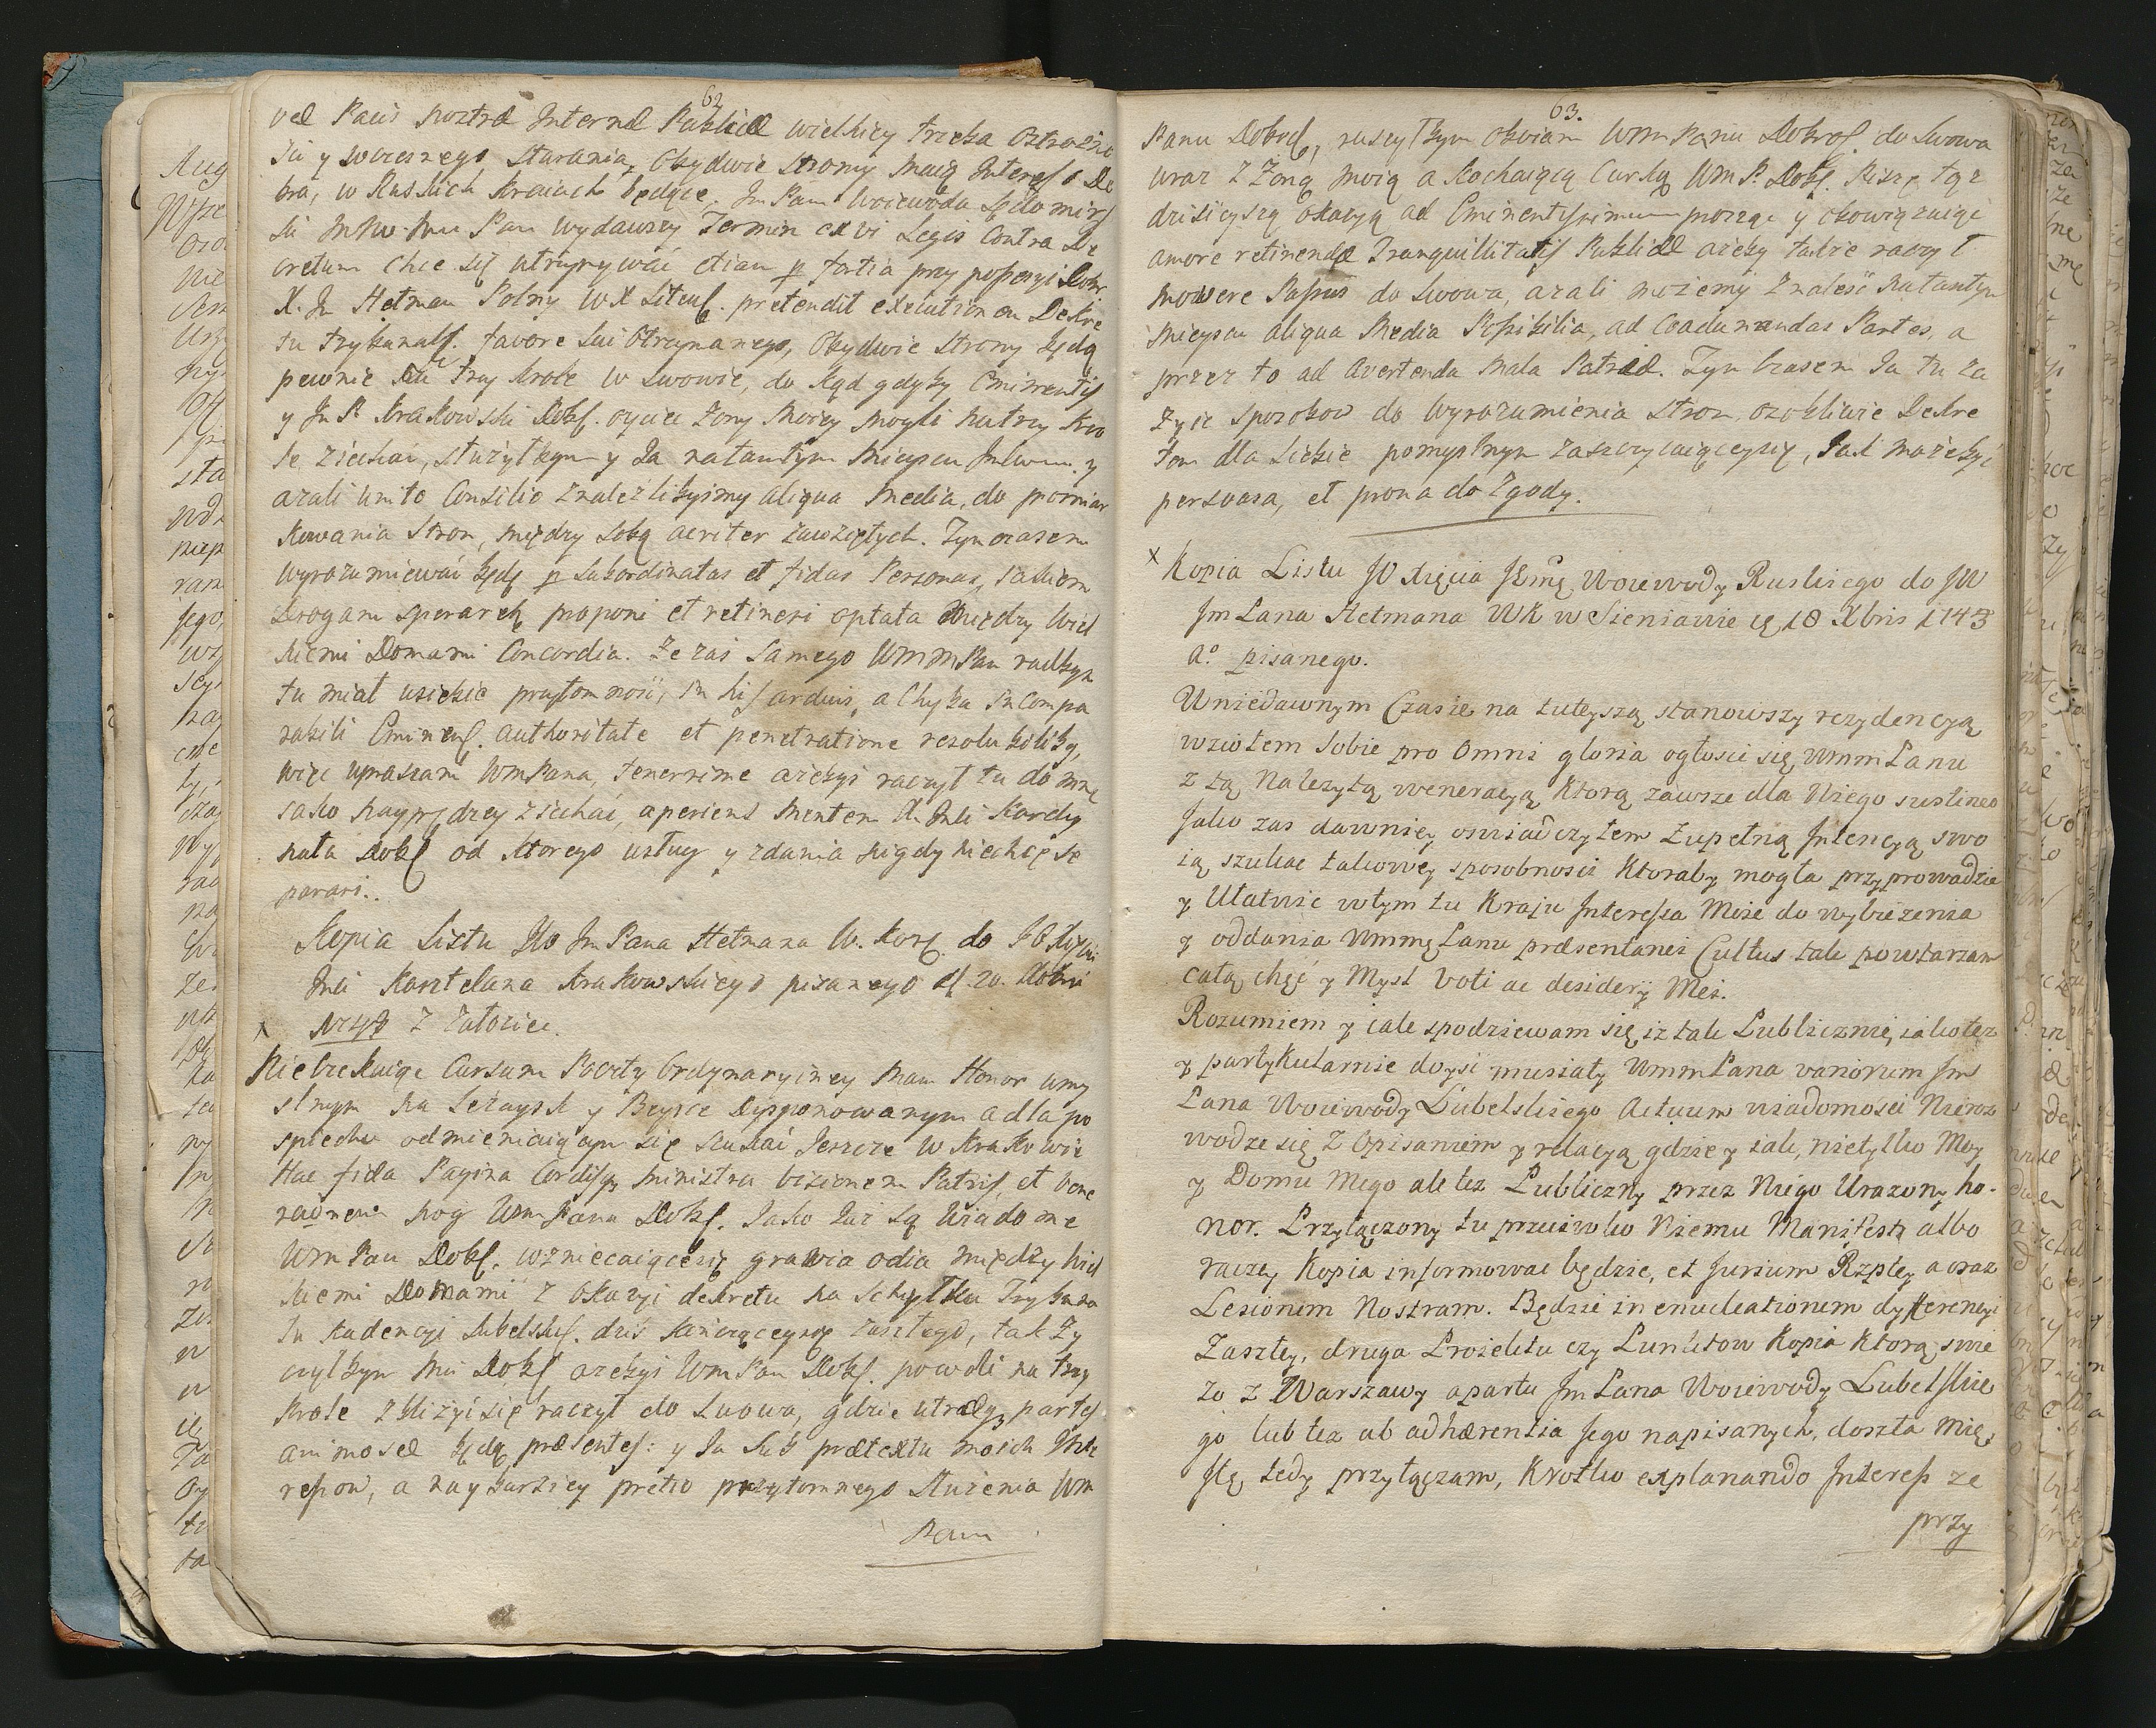 62
vel Pacis nostræ Internæ Publicæ wielkiey trzeba Ostrożno
sci y wczesnego starania, Obydwie strony maią Interess o Do
bra, w Ruskich Kraiach będące. Jm Pan Woiewoda Sędomirs
ki Pan wydawszy Termin ex vi Legis Contra De
cretum chce się utrzymywać etiam p fortia przy possessyi Dobr
X. Jm Hetman Polny WX Litews. prætendit execution em Dekre
tu Trybunals. favore sui Otrzymanego, Obydwie strony będą
pewnie na trzy Krole w Lwowie, do kąd gdyby Eminentis
y Jm P. Krakowski Dobs. oyciec Zony moiey mogli na trzy Kro
le ziechać, służyłbym y Ja natamtym mieyscu y
azali unito Consilio znaleźlibyśmy aliqua media, do pomiar
kowania stron, między sobą acriter zawziętych. Tym czasem
wyrozumiewać będę p subordinatas et fidas Personas, jakiem
Drogam sperareb proponi et retineri optata między Wiel
kiemi Domami Concordia. Ze zaś samego WMMPan radbym
tu miał usiebie przytomność, in his arduis, a Chyba incompa
rabili Eminens. authoritate et penetratione rezolubiliby,
więc upraszam WmPana, tenerrime ażebyś raczył tu do mnę
iako nayprędzey ziechać, aperiens mentem X. Jmci Kardy
nała Dobs od ktorego usług y zdania nigdy niechcę se
parari..
Kopia Listu Jo Jm Pana Hetmana W. Kor. do JO Xięcia
Jmci Kasztelana Krakowskiego pisanego d. 20. Xbris
x 1743 z Załoziec.
Nieczekaiąc Cursum Poczty Ordynaryiney mam Honor umy
slnym na Leżaysk y Beysce Dysponowanym a dla po
spiechu odmieniaiącym się szukać Jeszcze w Krakowie
Hac fida Pagina Cordisq ministra bisionem Patris, et vene
randnem nog Wm Pana Dobs. Jako iuż są Wiadome
WmPanu Dobs. wzniecaiącesię gravia odia między Wiel
kiemi Domami z Okazyi dekretu na Schyłku Trybuna
łu Kadencyi Lubelskis. dziś kończącegosię zaszłego, tak ży
czyłbym mi Dobs ażebyś WmPan Dobs. powoli na trzy
Krole zbliżyć się raczył do Lwowa, gdzie utræq partes
animosæ będą præsentes: y Ja sub prætextu moich Inte
ressow, a naybarziey pretio przytomnego służenia Wm
Panu
63.
Panu Dobrods, ruszyłbym obviam WMMPanu Dobros. do Lwowa
wraz z Żoną moią a Kochaiącą Curką WmP. Dobs. Piszę tąż
dzisieyszą okazyą ad Eminentissimum prosząc y obowiązuiąc
amore retinendæ Tranquillitatis Publicæ ażeby także raczył
movere Passus do Lwowa, azali możemy znaleść natamtym
mieyscu aliqua Media Possibilia, ad Coadunandas Partes, a
przez to ad Avertenda mala Patriæ. Tym Czasem Ja tu za
żyie sposobow do wyrozumienia stron osobliwie Dekre
tem dla siebie pomyslnym zaszczycaiąceysię, Jak możebyć
persvasa, et prona do Zgody.
x Kopia Listu JO Xięcia JEmę Woiewody Ruskiego do JW
Jm Pana Hetmana WK w Sieniawie ię 18 Xbris 1743
A.º pisanego.
Wniedawnym Czasie na tuteyszą stanowszy rezydencyą
wziołem Sobie pro Omni gloria ogłosić się WmmPanu
z tą Należytą weneracyą ktorą zawsze dla Niego sustineo
Jako zas dawniey oswiadczyłem Zupełną Intencyą swo
ią szukac takowey sposobnosci Ktoraby mogła przyprowadzic
y Ułatwic wtym tu Kraju Interessa Moie do wybieżenia
y oddania WmmęPanu præsentanei Cultus tak powtarzam
całą chęć y Mysl voti ac desiderÿ Mei.
Rozumiem y iale spodziewam się, iż tak Publicznie, iako też
y partykularnie doysc musiały WmmPana variorum Jm
Pana Woiewody Lubelskiego Actuum wiadomosci Nieroz
wodze się z Opisaniem y relacyą gdzie y iak, nietylko Moy
y Domu Mego ale też Publiczny przez Niego Urazony ho-
nor. Przyłączony tu przeciwko Niemu Manifest albo
raczey Kopia informowac będzie, et Jurium Rzpltey a oraz
Lesionem Nostram. Będzie in enucleationem dyfferencyi
Zaszłey, druga Proiektu czy Punktow Kopia Ktora swie
zo z Warszawy a parte Jm Pana Woiewody Lubelskie
go lub też ab adhærentia Jego napisanych, doszła Mię,
Ję tedy przyłączam, Krotko explanando Interess ze
przy